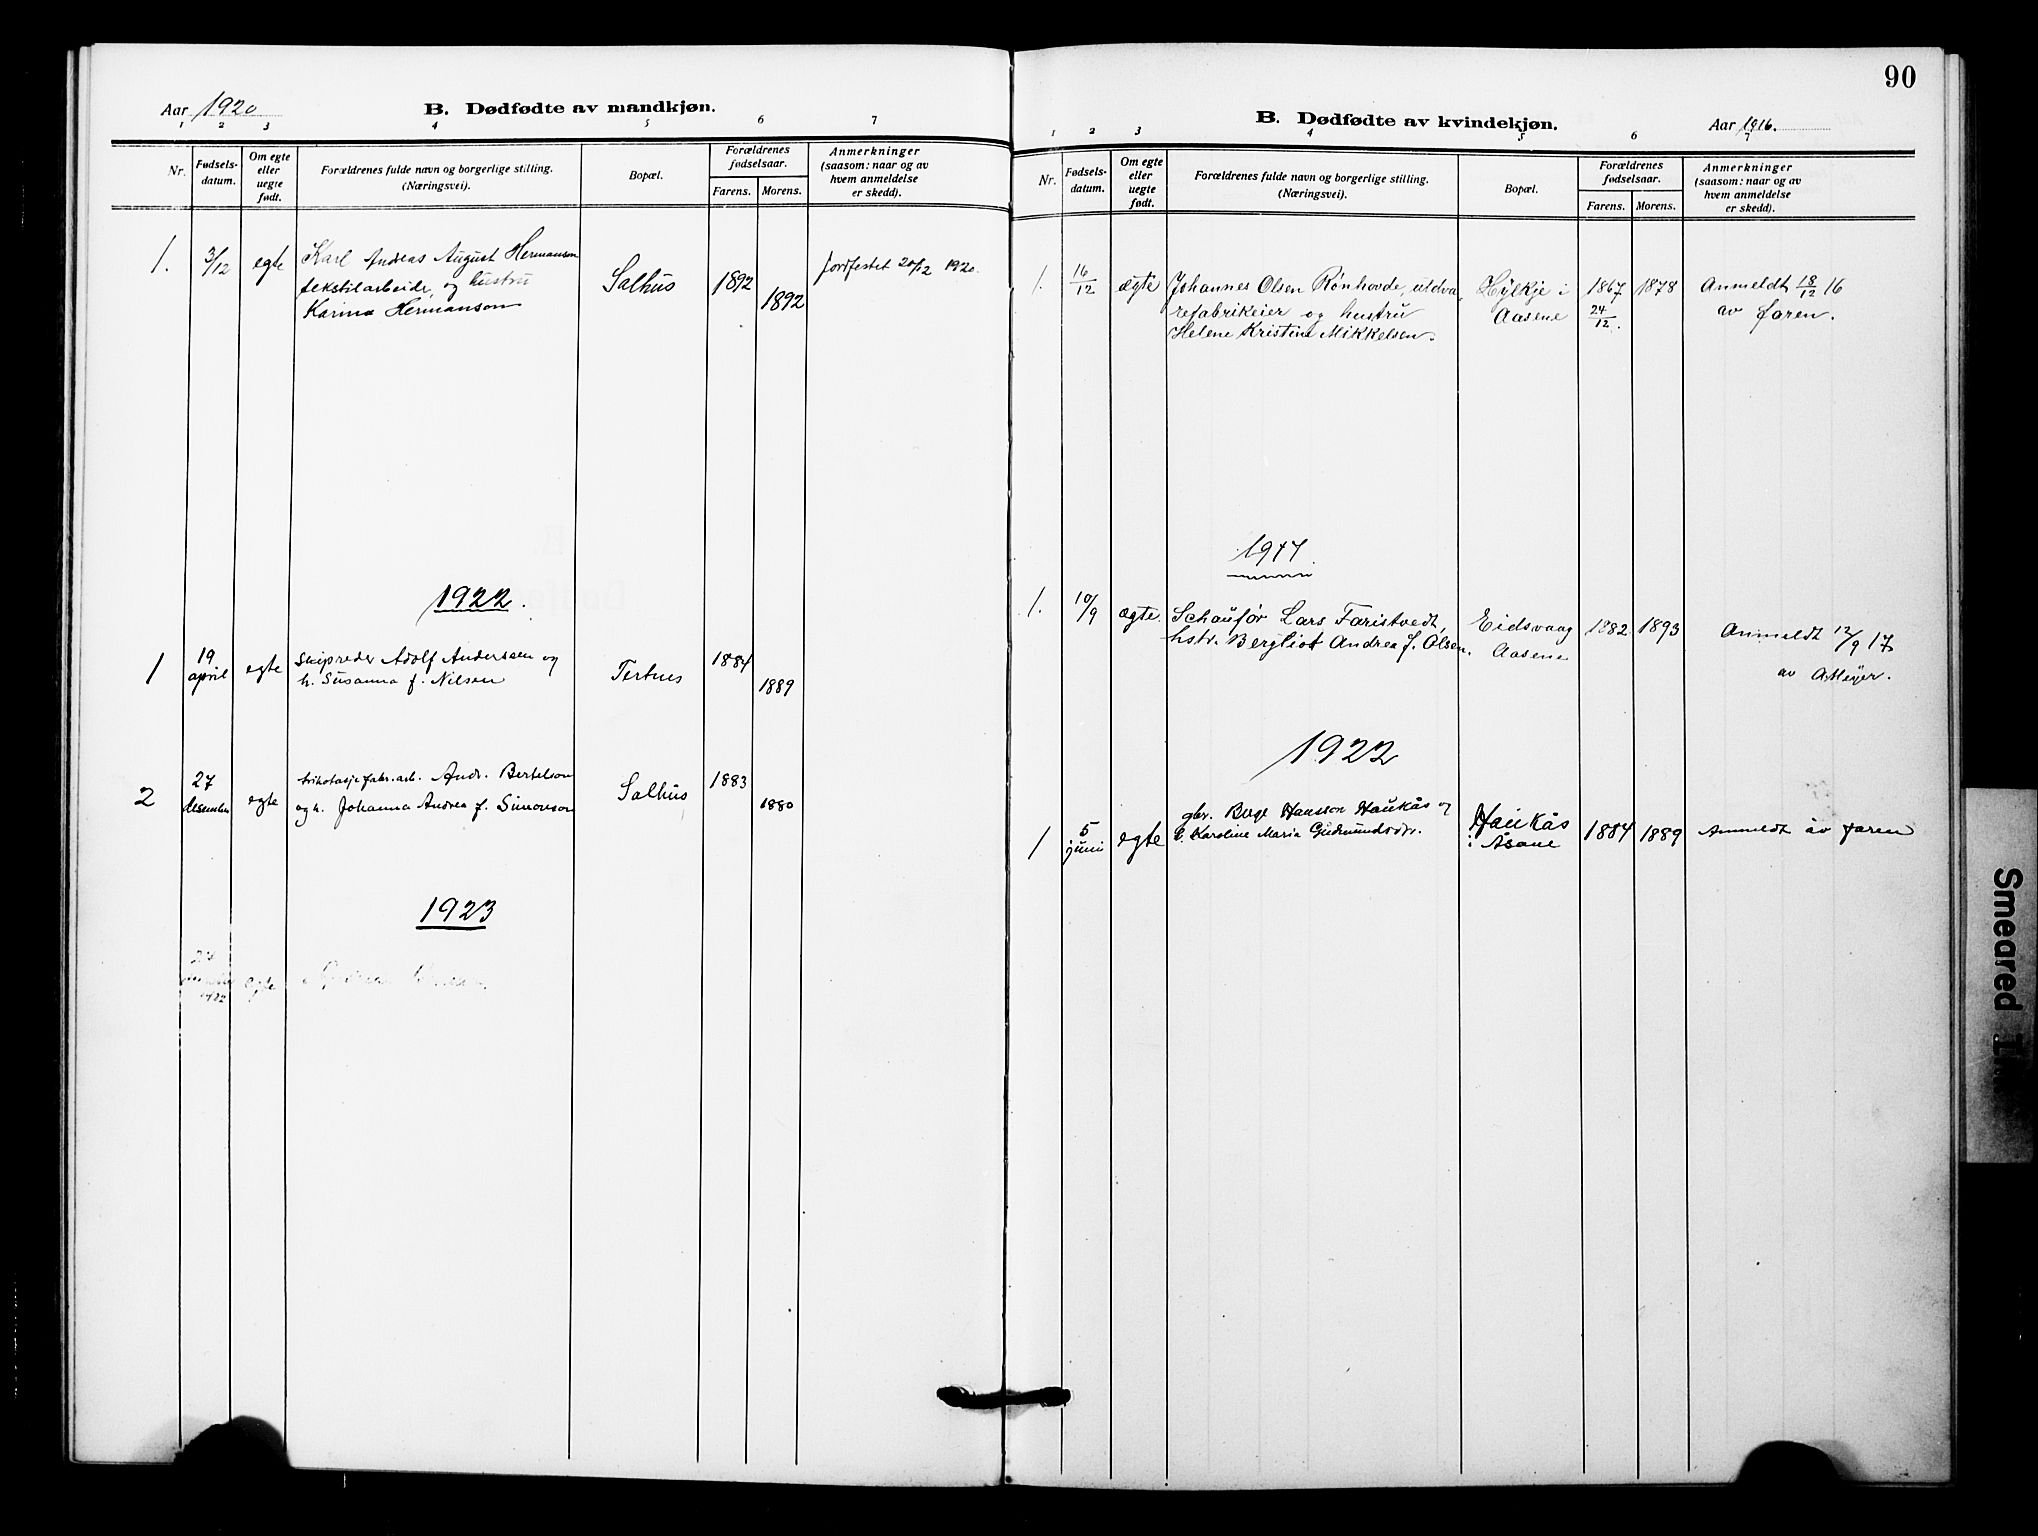 Aar 1920
B. Dødfødte av mandkjøn.
1 2 3 4 5 6 7
Nr.
Fødsels-
datum.
Om egte
eller
uegte
født.
Forældrenes fulde navn og borgerlige stilling.
(Næringsvei).
Bopæl.
Forældrenes
fødselsaar.
Farens. Morens.
Anmerkninger
(saasom: naar og av
hvem anmeldelse
er skedd).
1. 3/12 egte Karl Andreas August Hermanson Salhus 1892 1892 Jordfestet 20/12 1920.
tekstilarbeider og hustru
Karina Hermanson
1922.
1 19 april egte Skipreder Adolf Anderssen og Tertnes 1884 1889
h. Susanna f. Nilsen
2 27 desember egte trikotasjefabr.arb. Andr. Bertelson Salhus 1883 1880
og h. Johanna Andrea f. Simonson
1923
egte
90
B. Dødfødte av kvindekjøn.
Aar 1916.
1 2 3 4 5 6 7
Nr.
Fødsels-
datum.
Om egte
eller
uegte
født.
Forældrenes fulde navn og borgerlige stilling.
(Næringsvei).
Bopæl.
Forældrenes
fødselsaar.
Farens. Morens.
Anmerkninger
(saasom: naar og av
hvem anmeldelse
er skedd).
1. 16/12 ægte Johannes Olsen Rønhovde, uldva- Hylkje i 1867 1878 Anmeldt 18/12 16
refabrikeier og hustru Aasene 24/12. av faren.
Helene Kristine Mikkelsen.
1917.
1. 10/9 ægte Schaufør Lars Faristvedt, Eidsvaag 1882 1893 Anmeldt 12/9 17
hstr. Bergliot Andrea f. Olsen. Aasene
av A. Meyer.
1922
1 5 juni egte gbr. Berge Hansson Haukås og Haukås 1884 1889 Anmeldt av faren
Karoline Maria Gudmundsdr. i Åsane
Smeared